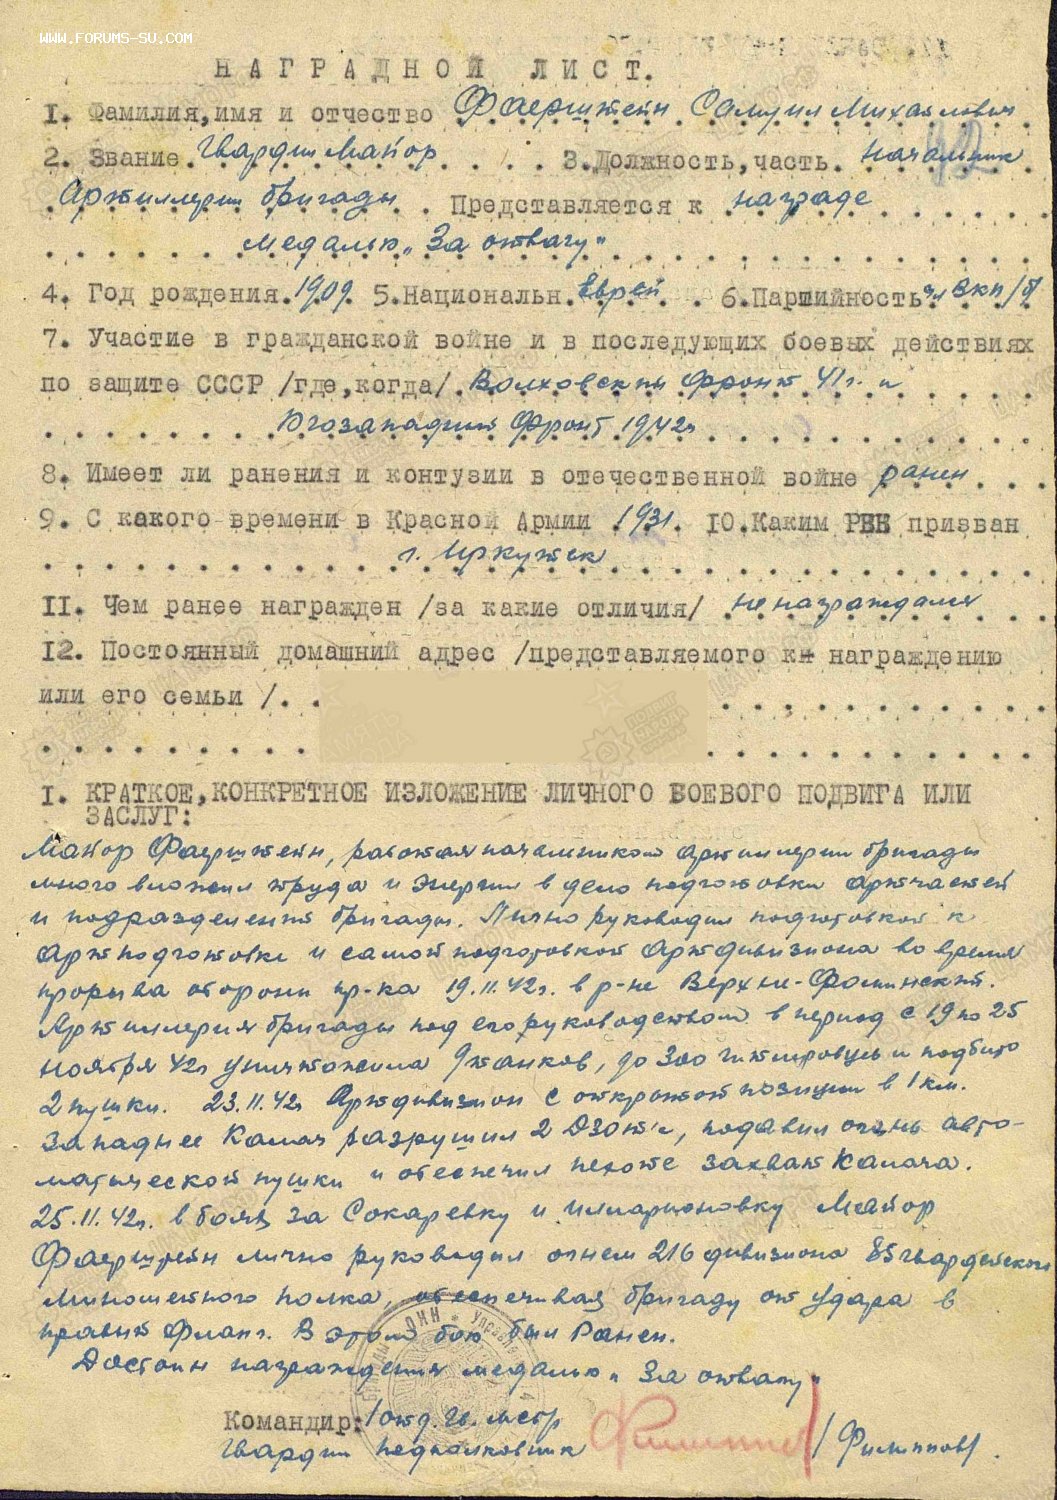 WWW.FORUMS-SU.COM
НАГРАДНОЙ ЛИСТ.
I. Фамилия,имя и отчество Фаерштейн Самуил Михайлович
2. Звание. Гвардии Майор 3.Должность,часть. Начальник
Артиллерии бригады Представляется к награде
медалью „За отвагу"
4. Год рождения. 1909 5.Национальн. Еврей 6.Партийность чл ВКП/б/
7. Участие в гражданской войне и в последующих боевых действиях
по защите СССР /где,когда/. Волховский фронт 41 г. и
Югозападный Фронт 1942г
8. Имеет ли ранения и контузии в отечественной войне ранен
9. С какого времени в Красной Армии 1931. IO.Каким РВК призван
г. Иркутск
II. Чем ранее награжден /за какие отличия/ не награждался
I2. Постоянный домашний адрес /представляемого к награждению
или его семьи /. .
I. КРАТКОЕ,КОНКРЕТНОЕ ИЗЛОЖЕНИЕ ЛИЧНОГО БОЕВОГО ПОДВИГА ИЛИ
ЗАСЛУГ:
Майор Фаерштейн, работая начальником артиллерии бригады
много вложил труда и энергии в дело подготовки артчастей
и подразделений бригады. Лично руководил подготовкой к
артподготовке и самой подготовкой Артдивизиона во время
прорыва обороны пр-ка 19.11.42г. в р-не Верхне-Фоминский.
Артиллерия бригады под его руководством в период с 19 по 25
ноября 42г уничтожила 9 танков, до 300 гитлеровцев и подбито
2 пушки. 23.11.42г Артдивизион с открытой позиции в 1 км.
Западнее Калач разрушил 2 ДЗОТ'а, подавил огонь авто-
матической пушки и обеспечил пехоте захват Калача.
25.11.42г. в боях за Сокаревку и Илларионовку Майор
Фаерштейн лично руководил огнем 216 дивизиона 85 гвардейского
Минометного полка, обеспечивая бригаду от удара в
правый Фланг. В этом бою был Ранен.
Достоин награждения медалью „За отвагу"
Командир: 1 отд. Гв. мсбр
Гвардии подполковник /Филиппов/.